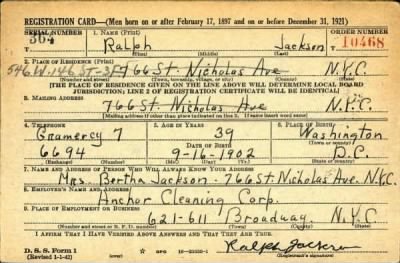 REGISTRATION CARD—(Men born on or after February 17, 1897 and on or before December 31, 1921)
SERIAL NUMBER 1. NAME (Print) ORDER NUMBER
304 Ralph Jackson 10468
(First) (Middle) (Last)
2. PLACE OF RESIDENCE (Print)
546 W. 146 St 766 St. Nicholas Ave N.Y.C.
(Number and street) (Town, township, village, or city) (County) (State)
[THE PLACE OF RESIDENCE GIVEN ON THE LINE ABOVE WILL DETERMINE LOCAL BOARD
JURISDICTION; LINE 2 OF REGISTRATION CERTIFICATE WILL BE IDENTICAL]
3. MAILING ADDRESS
766 St. Nicholas Ave N.Y.C.
(Mailing address if other than place indicated on line 2. If same insert word same)
4. TELEPHONE 5. AGE IN YEARS 6. PLACE OF BIRTH
Gramercy 7 39 Washington
DATE OF BIRTH (Town or county)
6694 9-16-1902 D.C.
(Exchange) (Number) (Mo.) (Day) (Yr.) (State or country)
7. NAME AND ADDRESS OF PERSON WHO WILL ALWAYS KNOW YOUR ADDRESS
Mrs. Bertha Jackson - 766 St Nicholas Ave. N.Y.C.
8. EMPLOYER'S NAME AND ADDRESS
Anchor Cleaning Corp.
9. PLACE OF EMPLOYMENT OR BUSINESS
621-611 Broadway. N.Y.C
(Number and street or R. F. D. number) (Town) (County) (State)
I AFFIRM THAT I HAVE VERIFIED ABOVE ANSWERS AND THAT THEY ARE TRUE.
D. S. S. Form 1
(Revised 1-1-42) (over) Ralph Jackson
(Registrant's signature)